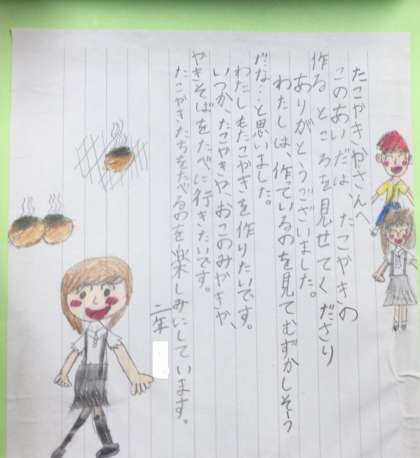 たこやきやさんへ
このあいだは、たこやきの
作るところを見せてくださり
ありがとうございました。
わたしは、作ているのを見てむずかしそう
だな…と思いました。
わたしもたこやきを作りたいです。
いつか、たこやきや、おこのみやきや、
やきそばをたべに行きたいです。
たこやきたちをたべるのを楽しみにしています。
二年